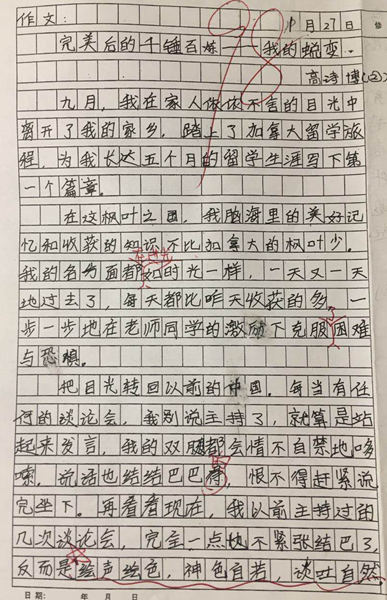 作文:
98
1月27日
完美后的千锤百炼——我的蜕变.
高诗博(2)
九月，我在家人依依不舍的目光中
离开了我的家乡，踏上了加拿大留学旅
程，为我长达五个月的留学生涯写下第
一个篇章。
在这枫叶之国，我脑海里的美好记
忆和收获的知识不比加拿大的枫叶少。
我的各方面都如时光一样，一天又一天
地过去了，每天都比昨天收获的多。一
步一步地在老师同学的激励下克服了困难
与恐惧。
把目光转回以前的中国。每当有任
何的谈论会，我别说主持了，就算是站
起来发言，我的双腿都会情不自禁地哆
嗦，说话也结结巴巴得，恨不得赶紧说
完坐下。再看看现在，我以前主持过的
几次谈论会，完全一点也不紧张结巴了，
反而是绘声绘色，神色自若，谈吐自然
日期: 年 月 日